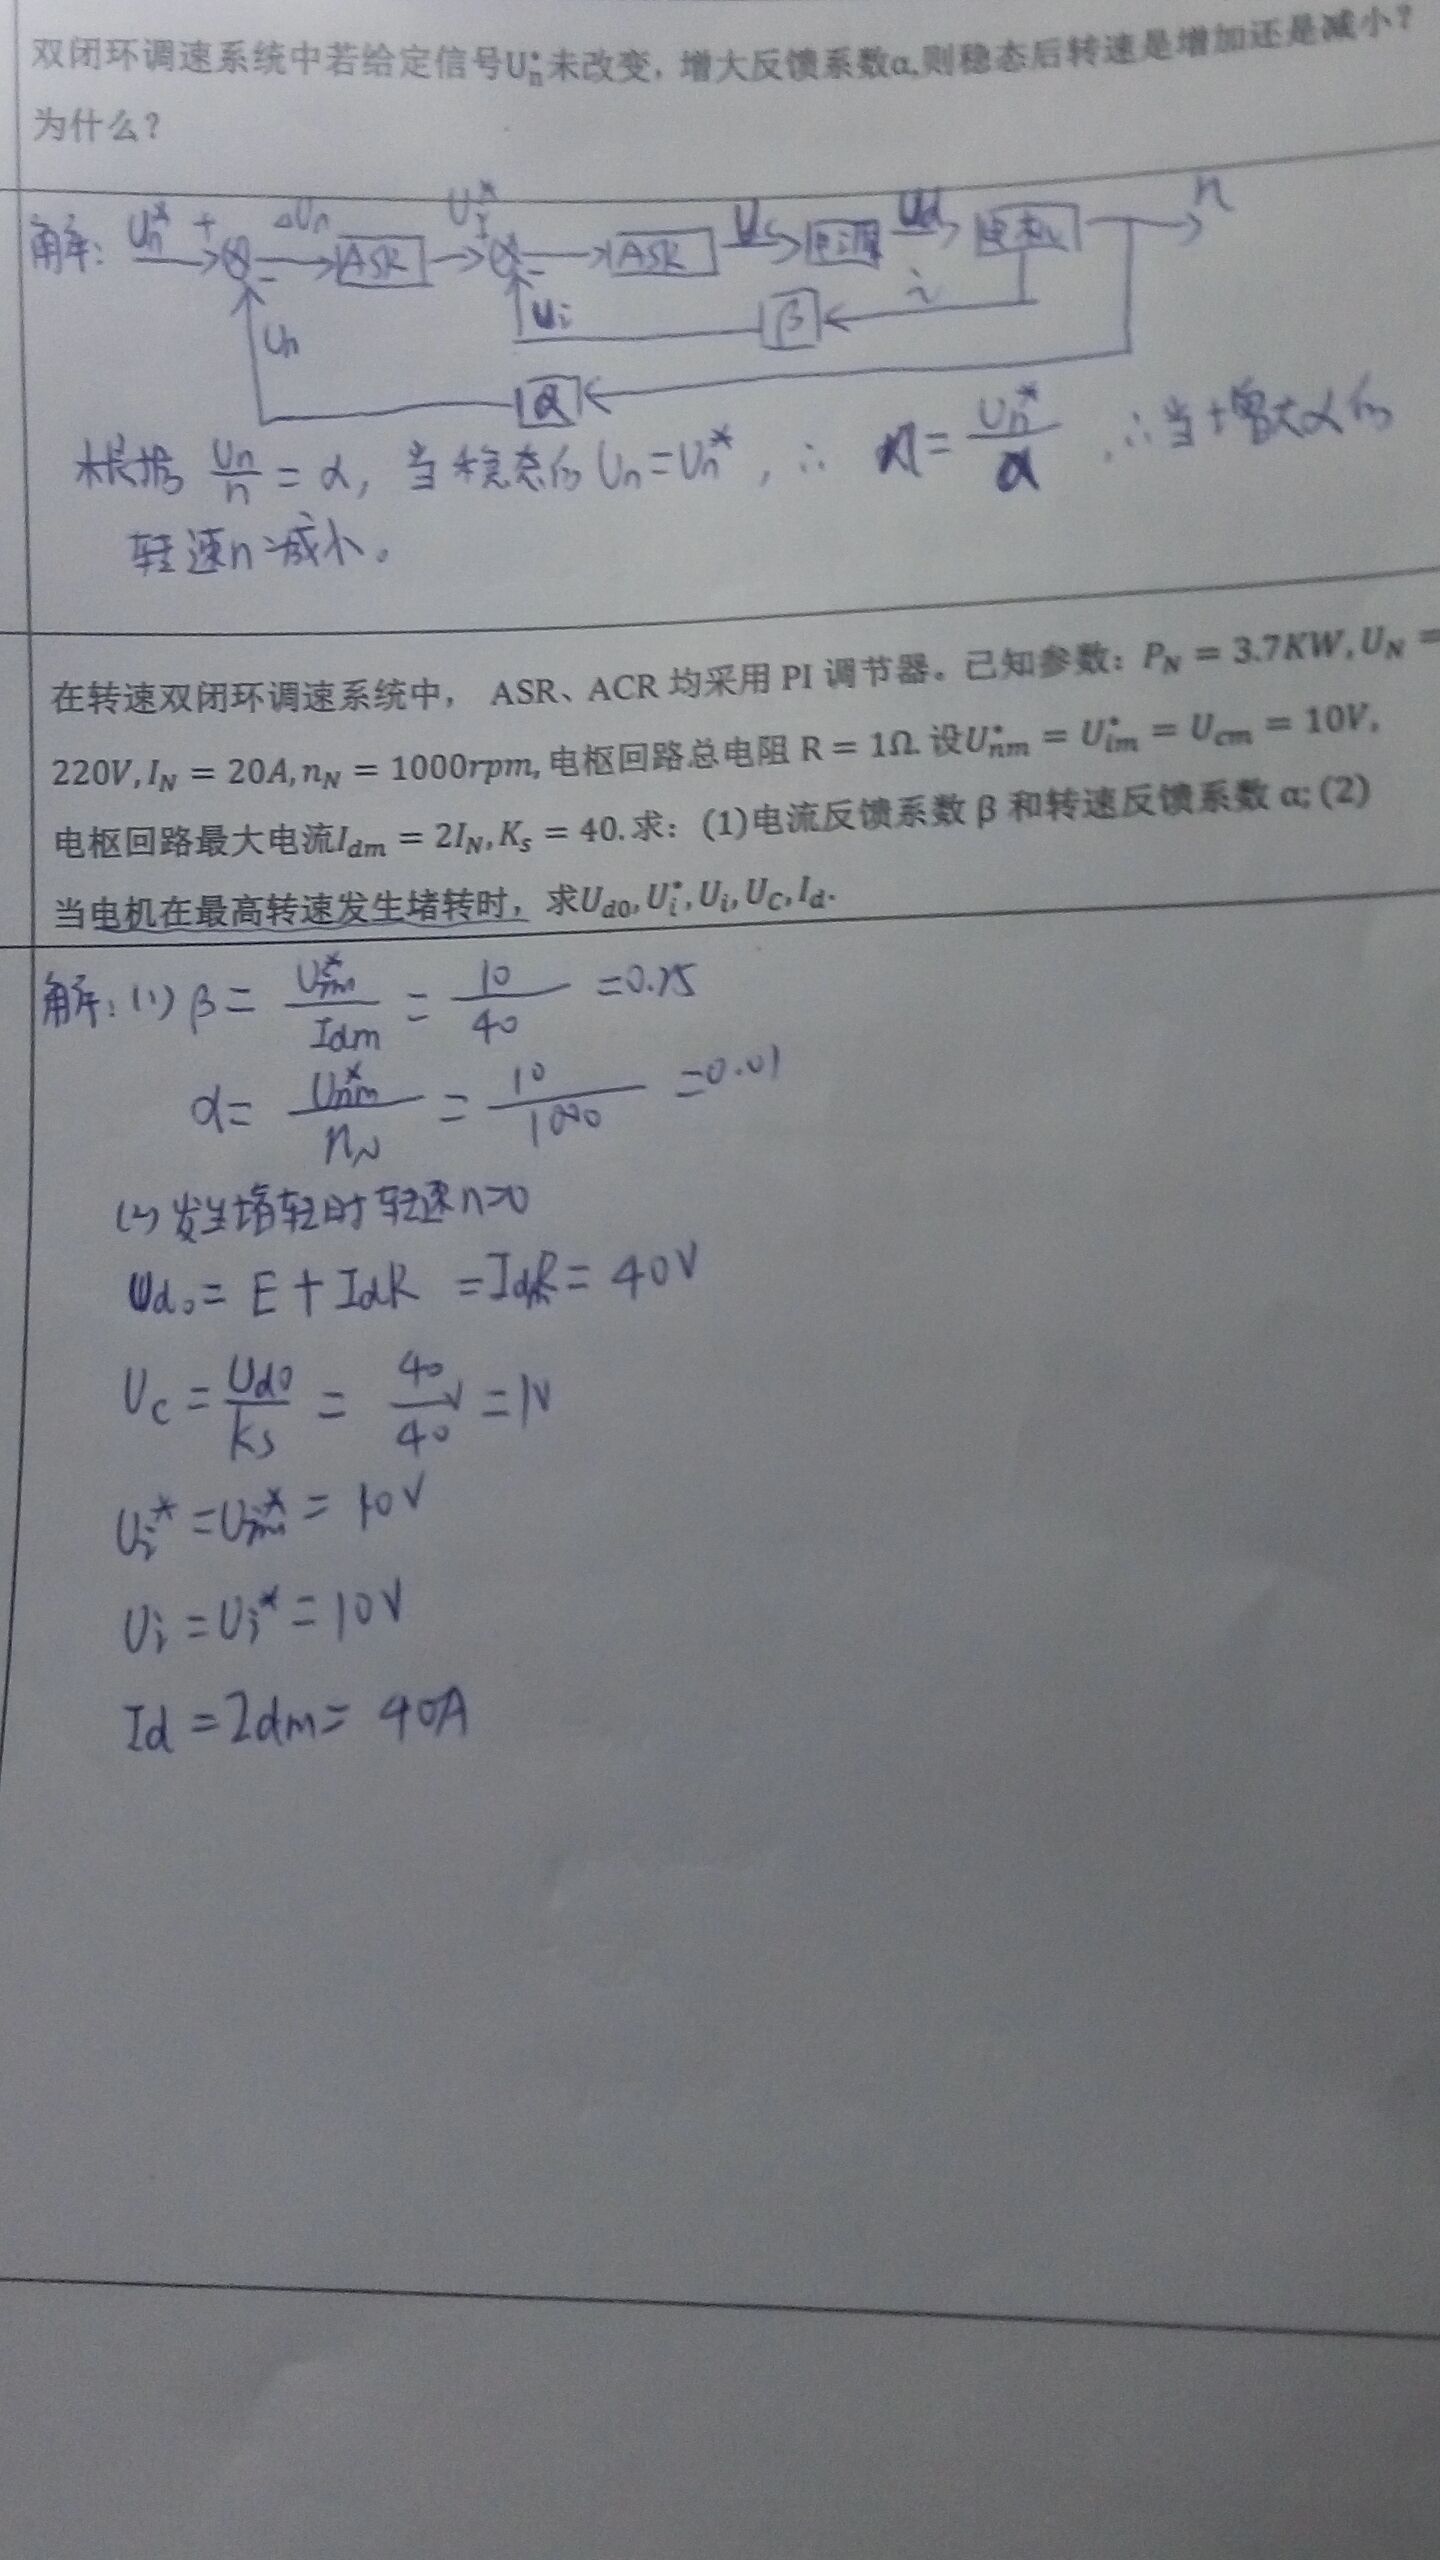 双闭环调速系统中若给定信号Uₙ*未改变，增大反馈系数α,则稳态后转速是增加还是减小？
为什么？
解： Uₙ* + - ΔUₙ ASR U_I* - ASR Uc 电源 Ud 电机 n
Ui β i
Un
α
根据 Un/n = α, 当稳态的 Un=Un*, ∴ n = Un*/α , ∴当增大α的
转速n减小。
在转速双闭环调速系统中， ASR、ACR 均采用 PI 调节器。已知参数：P_N = 3.7KW, U_N =
220V, I_N = 20A, n_N = 1000rpm, 电枢回路总电阻 R = 1Ω. 设U*nm = U*im = Ucm = 10V,
电枢回路最大电流Idm = 2I_N, Ks = 40. 求：(1)电流反馈系数 β 和转速反馈系数 α; (2)
当电机在最高转速发生堵转时，求Ud0, Ui*, Ui, Uc, Id.
解：(1) β = U*im/Idm = 10/40 =0.25
α = U*nm/n_N = 10/1000 =0.01
(2) 发生堵转时转速n=0
Ud0 = E + IdR = IdmR = 40V
Uc = Ud0/ks = 40/40 V = 1V
Ui* = Uim* = 10V
Ui = Ui* = 10V
Id = Idm = 40A